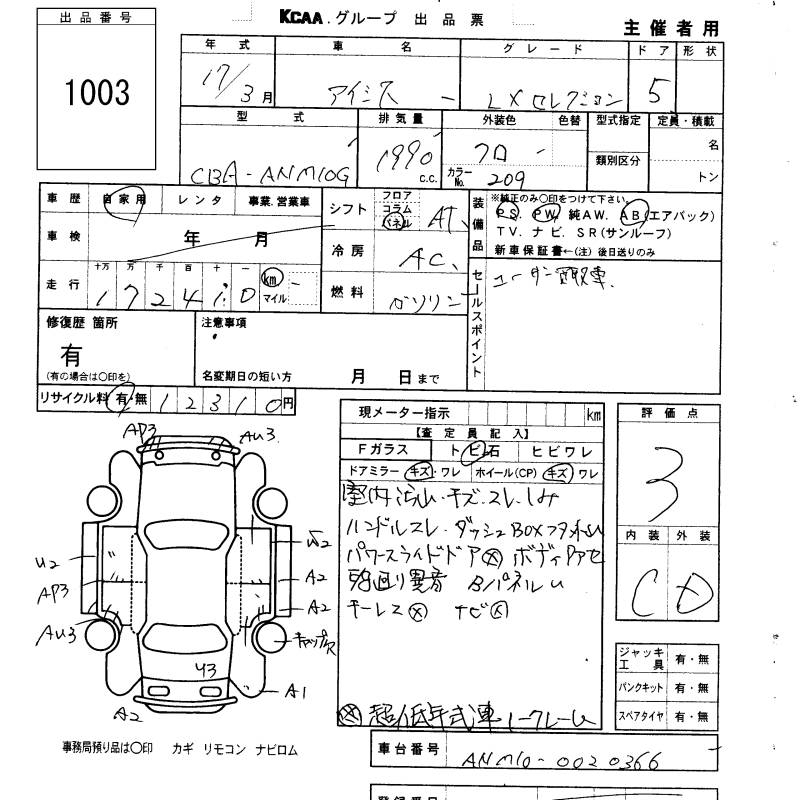 出品番号
KCAA.グループ 出品票
主催者用
1003
年式 車名 グレード ドア 形状
17/3月 アイシス LXセレクション 5
型式 排気量 外装色 色替 型式指定 定員・積載
CBA-ANM10G 1990 c.c. クロ カラーNo. 209 類別区分 名
トン
車歴 自家用 レンタ 事業.営業車
シフト フロア コラム パネル AT
装備品 ※純正のみ○印をつけて下さい。
PS. PW. 純AW. AB(エアバック)
TV. ナビ. SR(サンルーフ)
新車保証書←(注) 後日送りのみ
車検 年 月
冷房 AC
走行 十万 万 千 百 十 一
172410 km マイル
燃料 ガソリン
セールスポイント
ユーザー買取車
修復歴 箇所
有
(有の場合は○印を)
注意事項
名変期日の短い方 月 日まで
リサイクル料 有・無 12310円
現メーター指示 km
【査定員記入】
Fガラス トビ石 ヒビワレ
ドアミラー キズ・ワレ ホイール(CP) キズ ワレ
室内汚れ・キズ・スレ・しみ
ハンドルスレ・ダッシュBOXフタ
パワースライドドア ボディ
異音 Bパネル
キーレス ナビ
超低年式車
評価点
3
内装 外装
C D
ジャッキ工具 有・無
パンクキット 有・無
スペアタイヤ 有・無
AP3 AU3
U2 W2
AP3 A2
A2
AU3 キャップ欠
U3
A2 A1
事務局預り品は○印 カギ リモコン ナビロム
車台番号 ANM10-0020366
登録番号